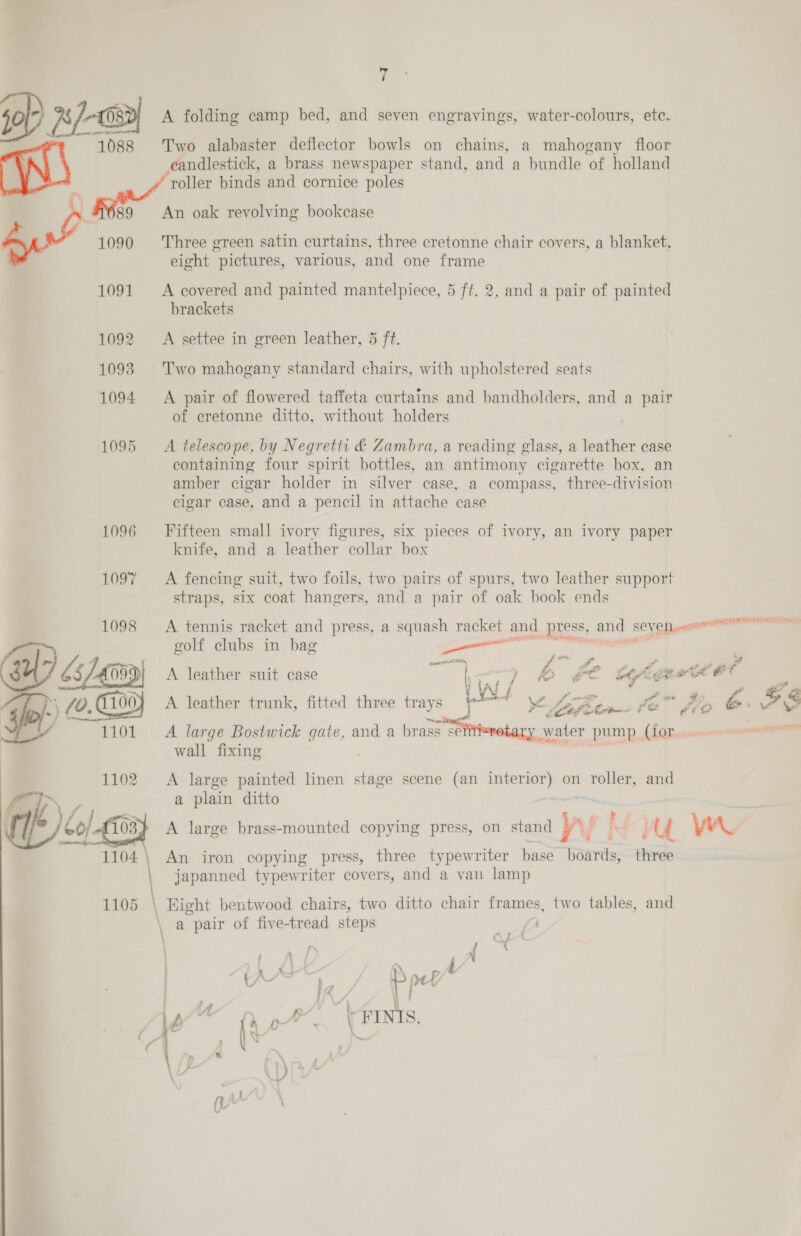 7
1087 A folding camp bed, and seven engravings, water-colours, etc.
1088 Two alabaster deflector bowls on chains, a mahogany floor
candlestick, a brass newspaper stand, and a bundle of holland
roller binds and cornice poles
1089 An oak revolving bookcase
1090 Three green satin curtains, three cretonne chair covers, a blanket,
eight pictures, various, and one frame
1091 A covered and painted mantelpiece, 5 ft. 2, and a pair of painted
brackets
1092 A settee in green leather, 5 ft.
1093 Two mahogany standard chairs, with upholstered seats
1094 A pair of flowered taffeta curtains and bandholders, and a pair
of cretonne ditto, without holders
1095 A telescope, by Negretti & Zambra, a reading glass, a leather case
containing four spirit bottles, an antimony cigarette box, an
amber cigar holder in silver case, a compass, three-division
cigar case, and a pencil in attache case
1096 Fifteen small ivory figures, six pieces of ivory, an ivory paper
knife, and a leather collar box
1097 A fencing suit, two foils, two pairs of spurs, two leather support
straps, six coat hangers, and a pair of oak book ends
1098 A tennis racket and press, a squash racket and press, and seven
golf clubs in bag
1099 A leather suit case
1100 A leather trunk, fitted three trays
1101 A large Bostwick gate, and a brass semi-rotary water pump (for
wall fixing
1102 A large painted linen stage scene (an interior) on roller, and
a plain ditto
1103 A large brass-mounted copying press, on stand
1104 An iron copying press, three typewriter base boards, three
japanned typewriter covers, and a van lamp
1105 Eight bentwood chairs, two ditto chair frames, two tables, and
a pair of five-tread steps
FINIS.